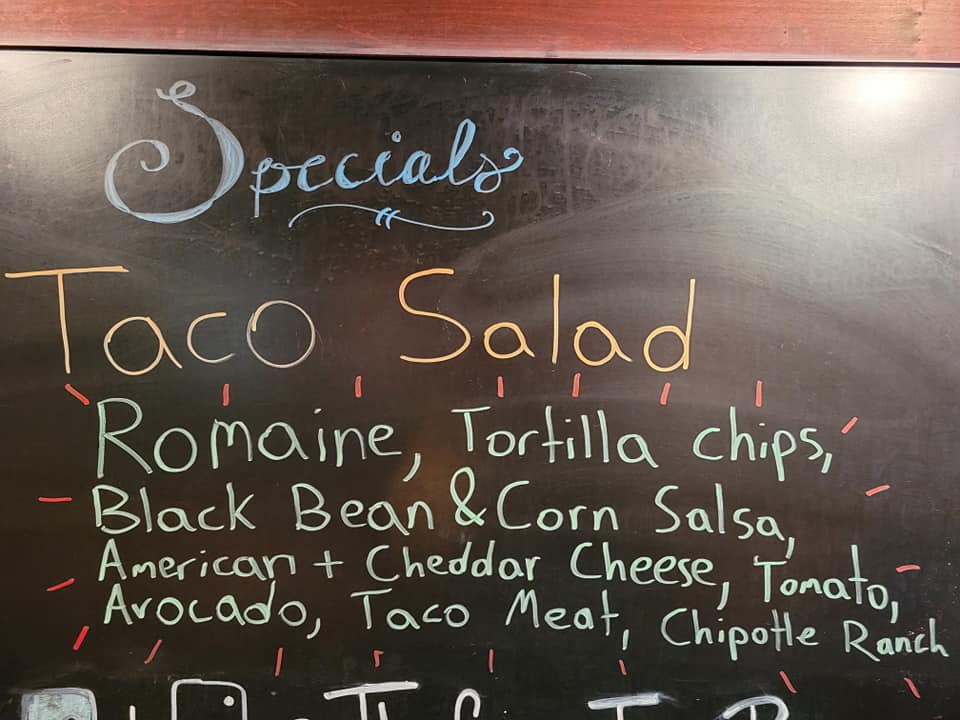 Specials
Taco Salad
Romaine, Tortilla chips,
Black Bean & Corn Salsa,
American + Cheddar Cheese, Tomato,
Avocado, Taco Meat, Chipotle Ranch